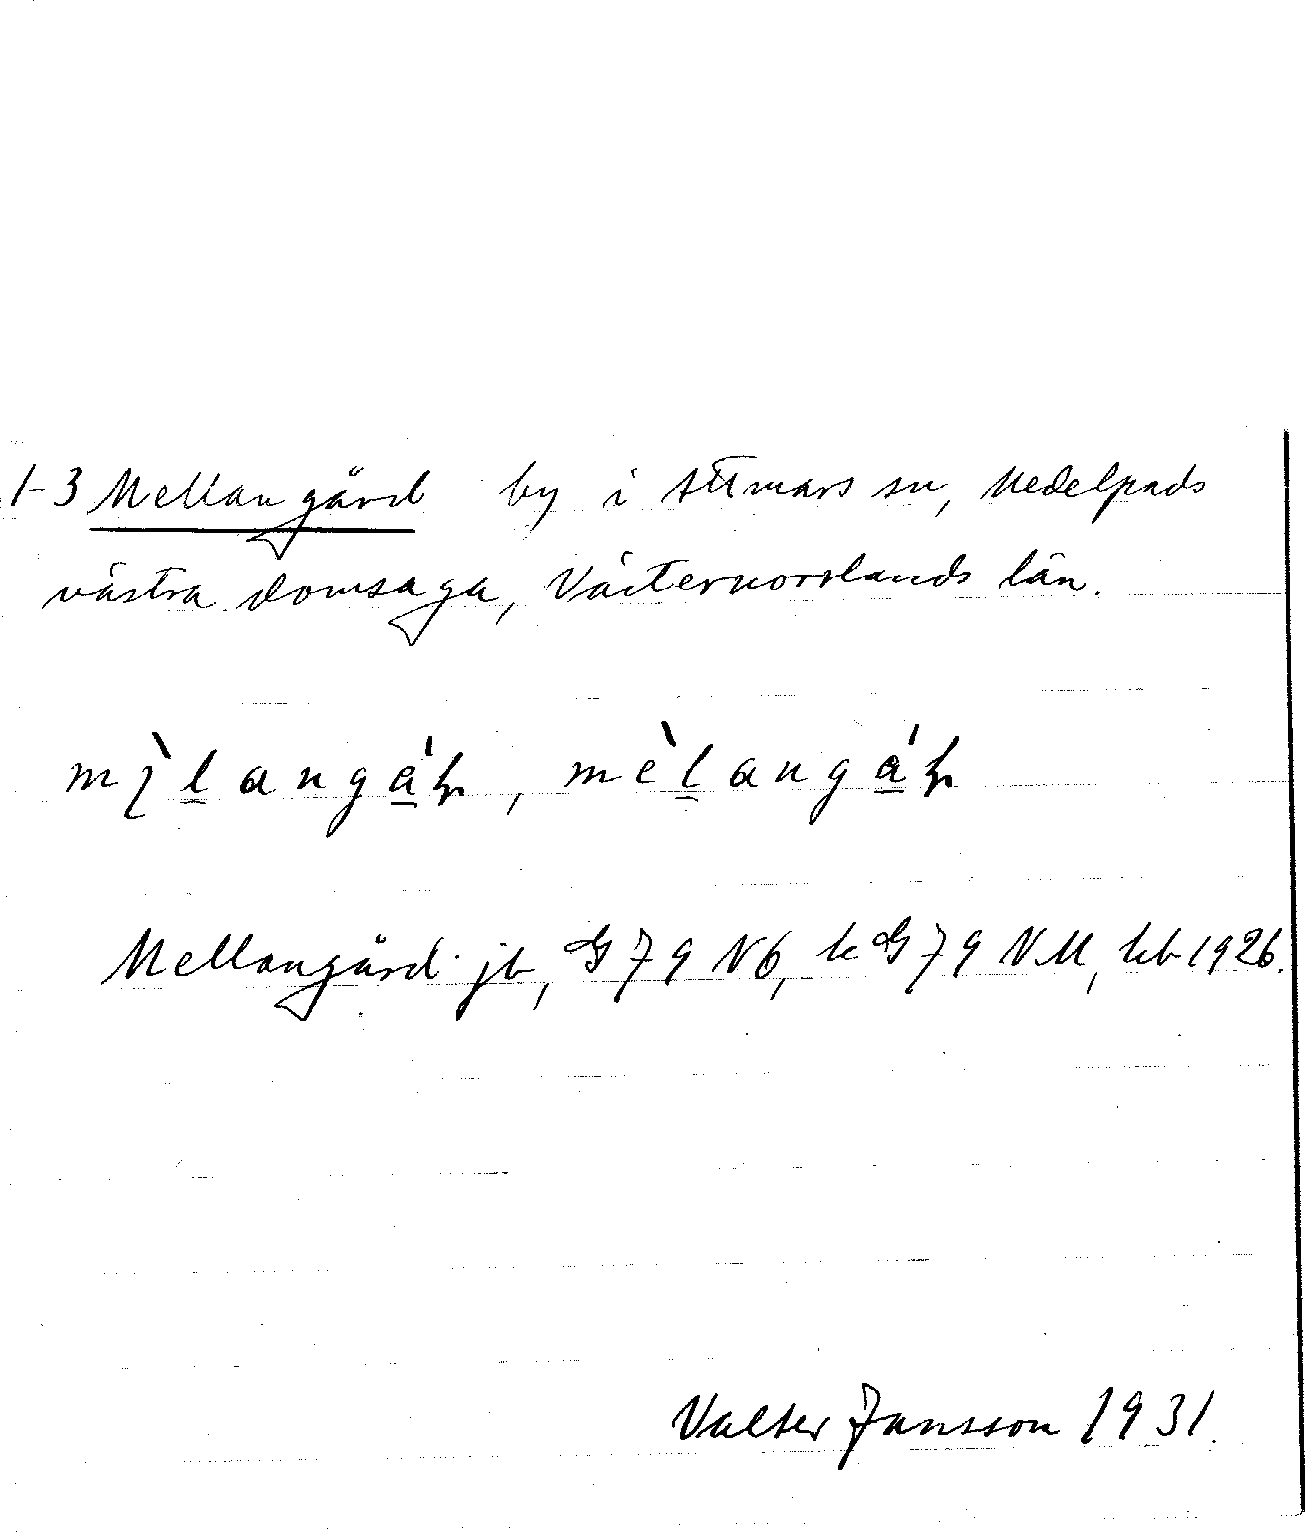 1-3 Mellangård by i Attmars sn, Medelpads
västra domsaga, Västernorrlands län.
Mellangård jb, G 79 Nb, k G 79 NM, kb 1926.
Valter Jansson 1931.